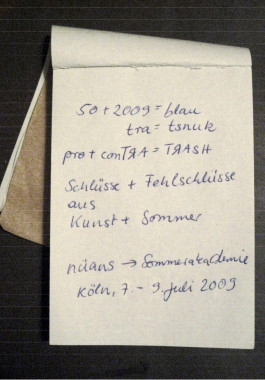 50 + 2009 = blau
tra = tsnuk
pro + conTRA = TRASH
Schlüsse + Fehlschlüsse
aus
Kunst + Sommer
nüans → Sommerakademie
Köln, 7. - 9. Juli 2009